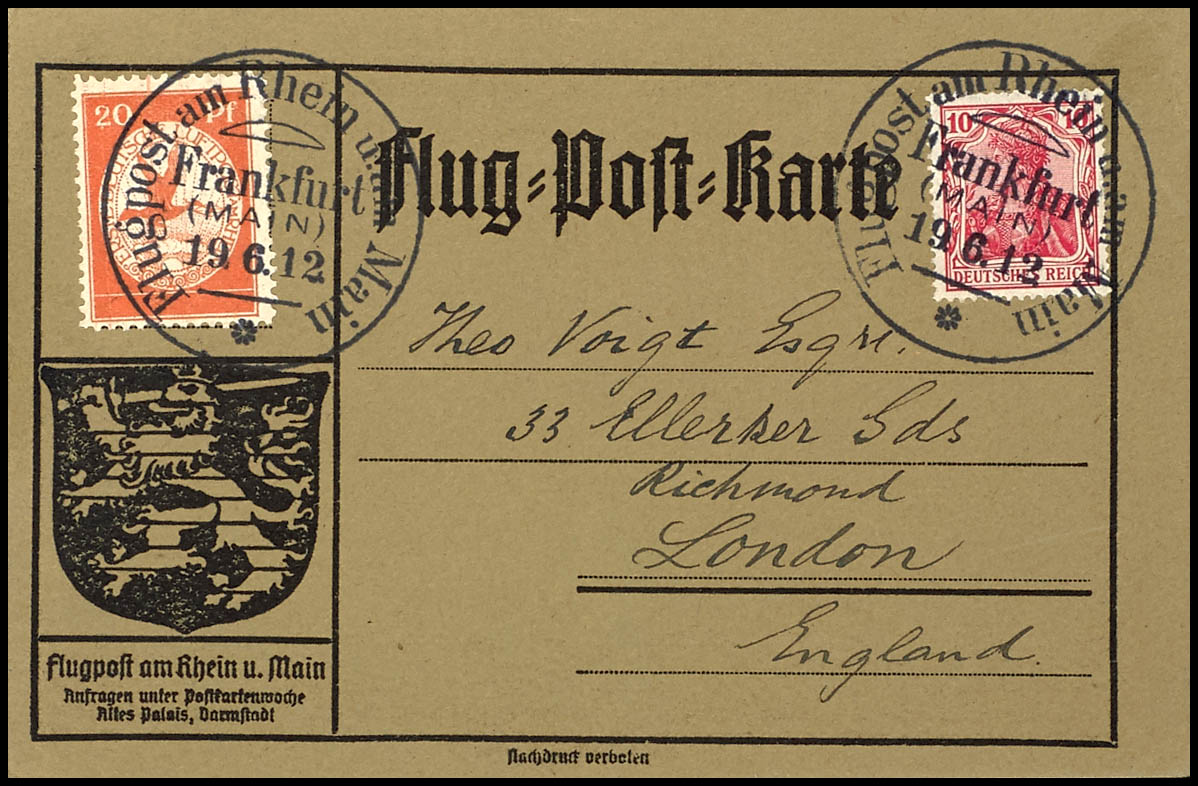 20 Pf
Flugpost am Rhein u. am Main
Frankfurt
(MAIN)
19.6.12
Flug=Post=Karte
Flugpost am Rhein u. am Main
Frankfurt
(MAIN)
19.6.12
10 10
DEUTSCHES REICH
Theo Voigt Esqre.
33 Ellerker Gds
Richmond
London
England.
Flugpost am Rhein u. Main
Anfragen unter Postkartenwoche
Altes Palais, Darmstadt
Nachdruck verboten